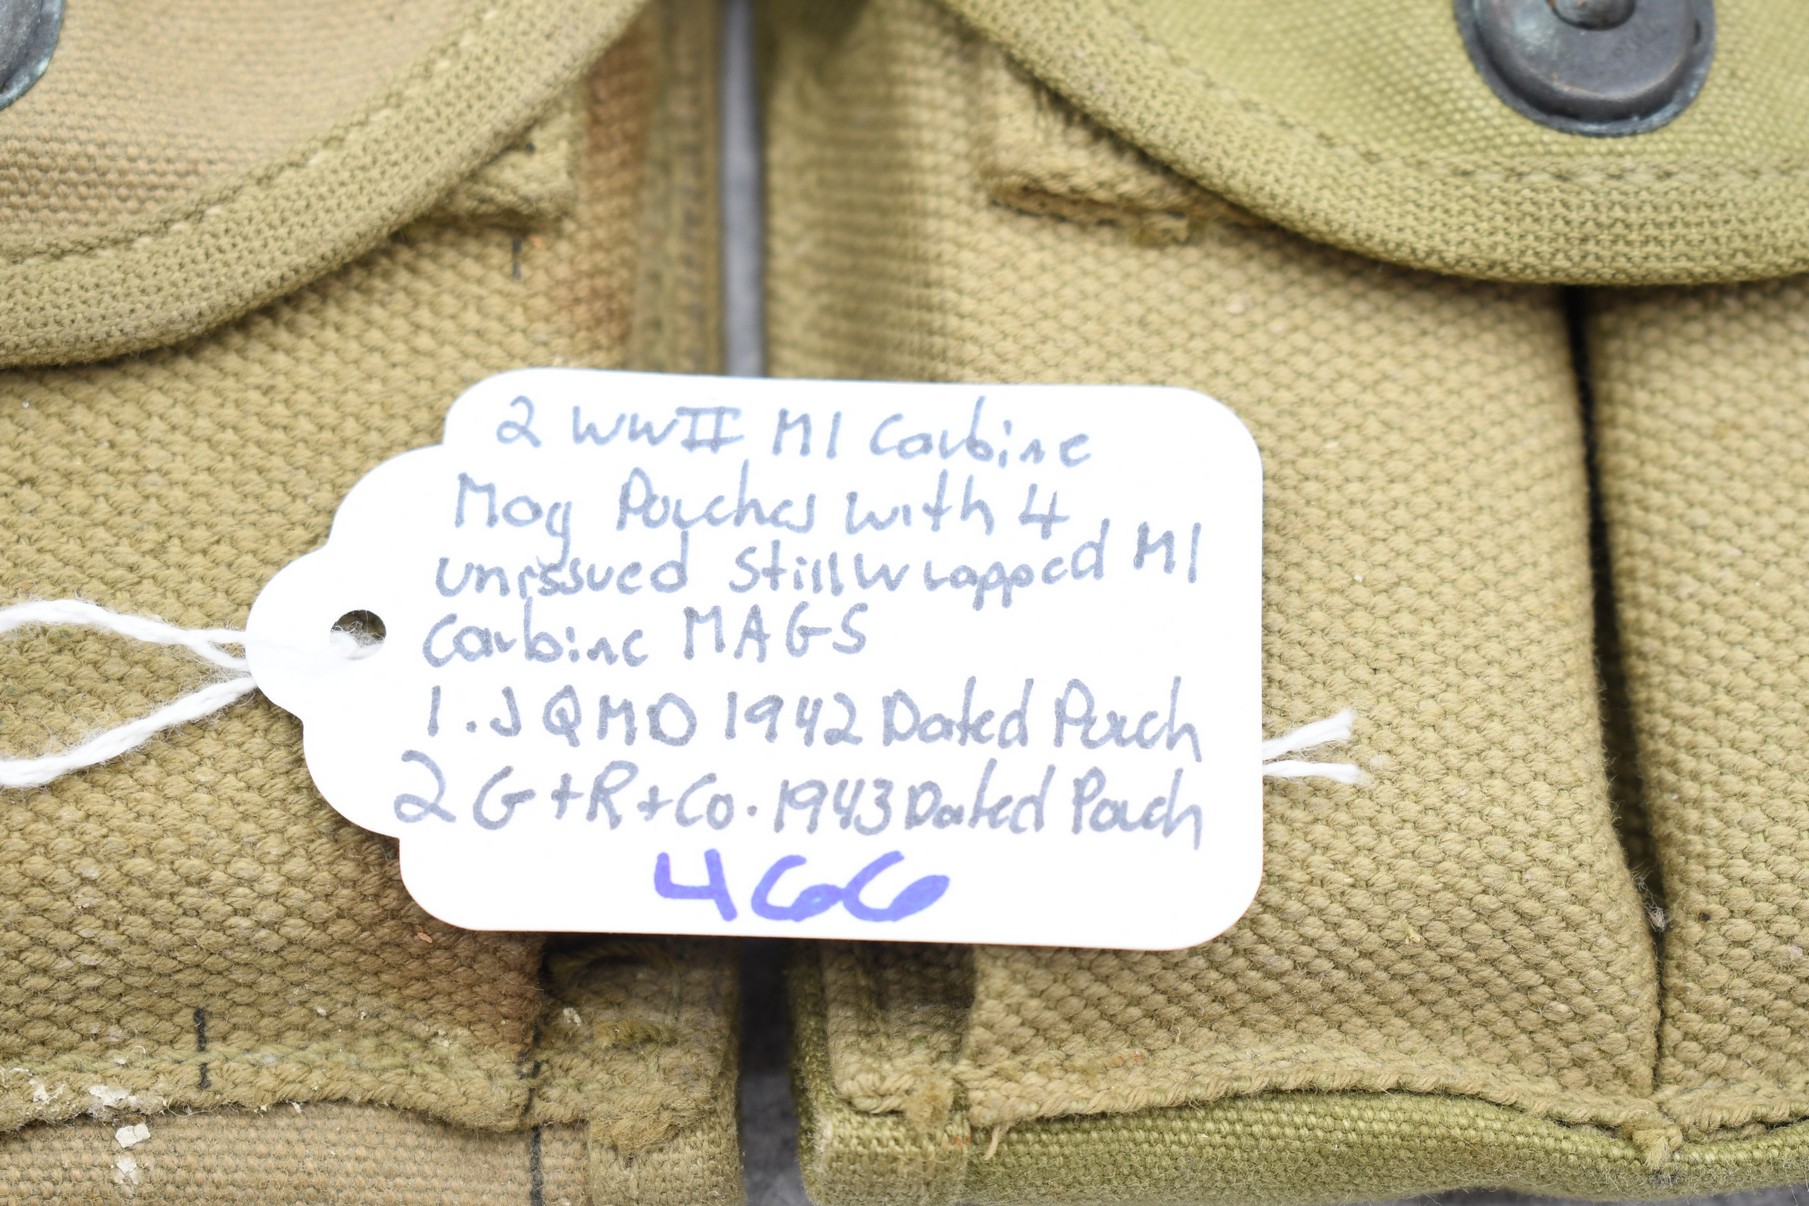 2 WWII M1 Carbine
Mag Pouches with 4
unissued Still Wrapped M1
Carbine MAGS
1. JQMD 1942 Dated Pouch
2 G+R+Co. 1943 Dated Pouch
466